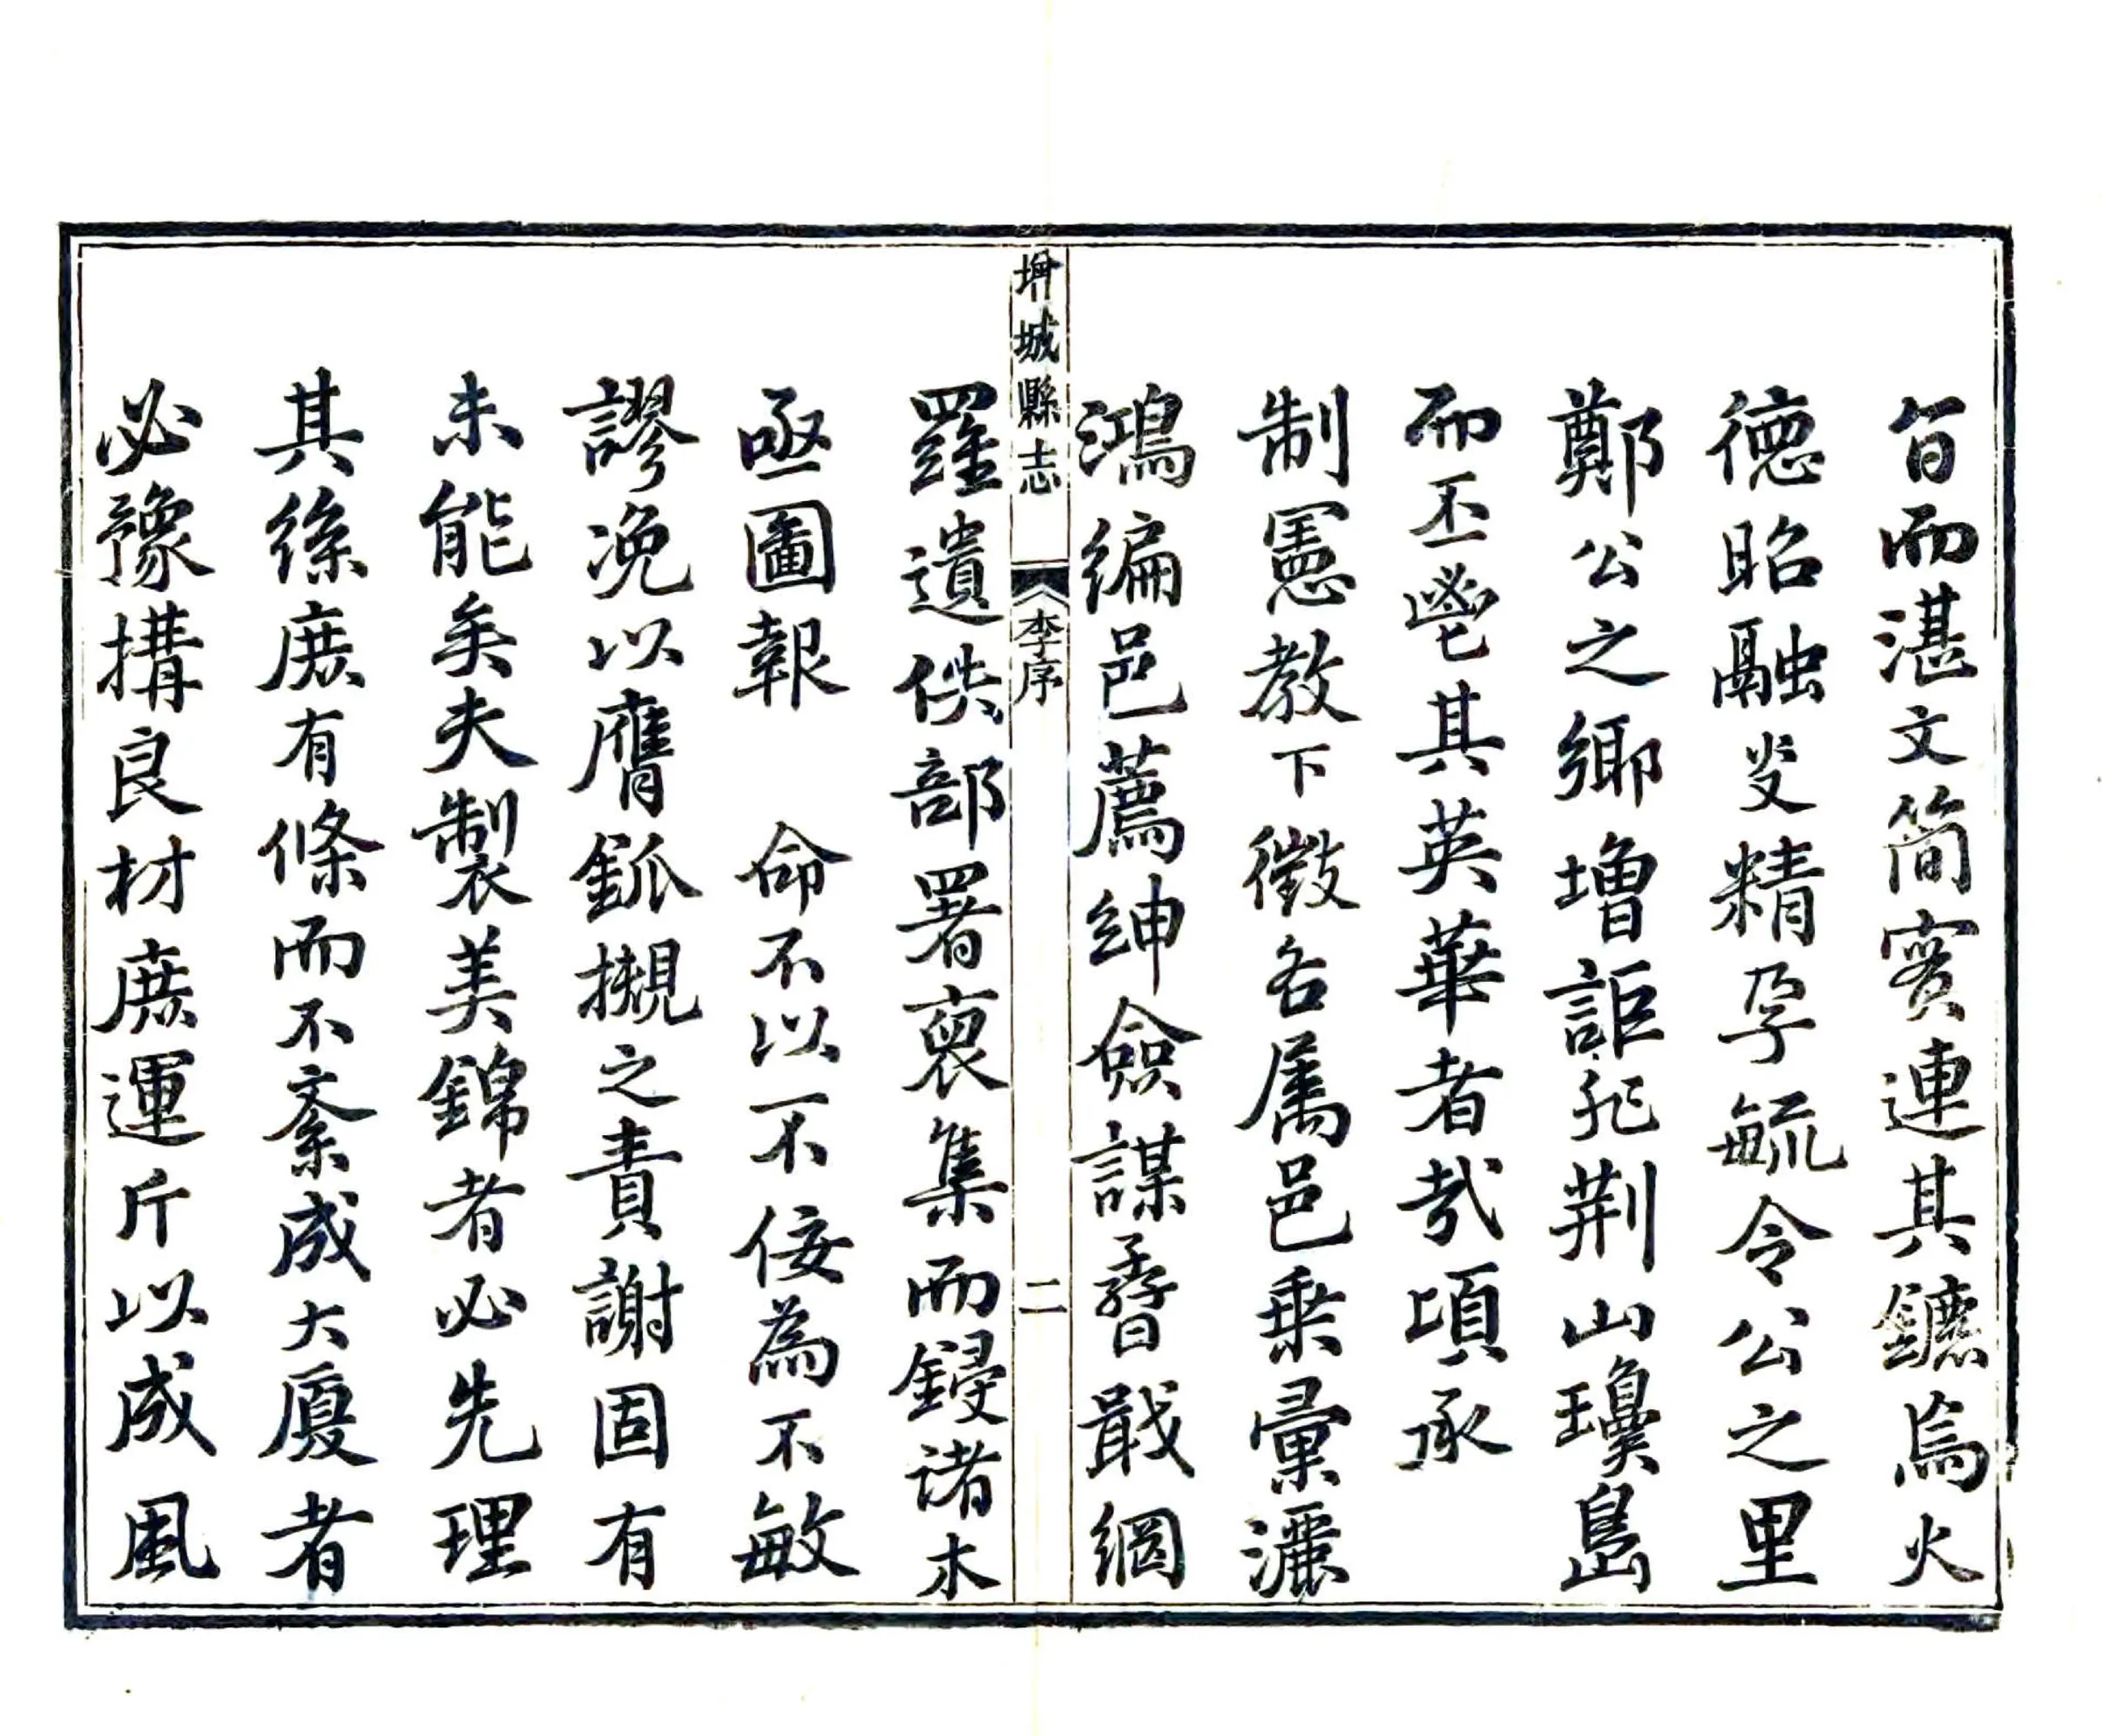 㫖而湛文簡實連其鑣焉火
德昭融爰精孕毓令公之里
鄭公之鄉增詎非荆山瓊島
而丕鬯其英華者哉頃承
制憲教下徵各属邑乗彙灑
鴻編邑薦紳僉謀孴戢網
增城縣志 李序 二
羅遺佚部署裒集而鋟諸木
亟圖報 命不以不佞為不敏
謬凂以膺鈲摫之責謝固有
未能矣夫製美錦者必先理
其絲庶有條而不紊成大厦者
必豫搆良材庶運斤以成風